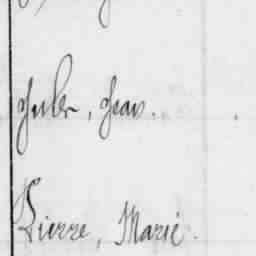 Jules, Jean.
Pierre, Marie.